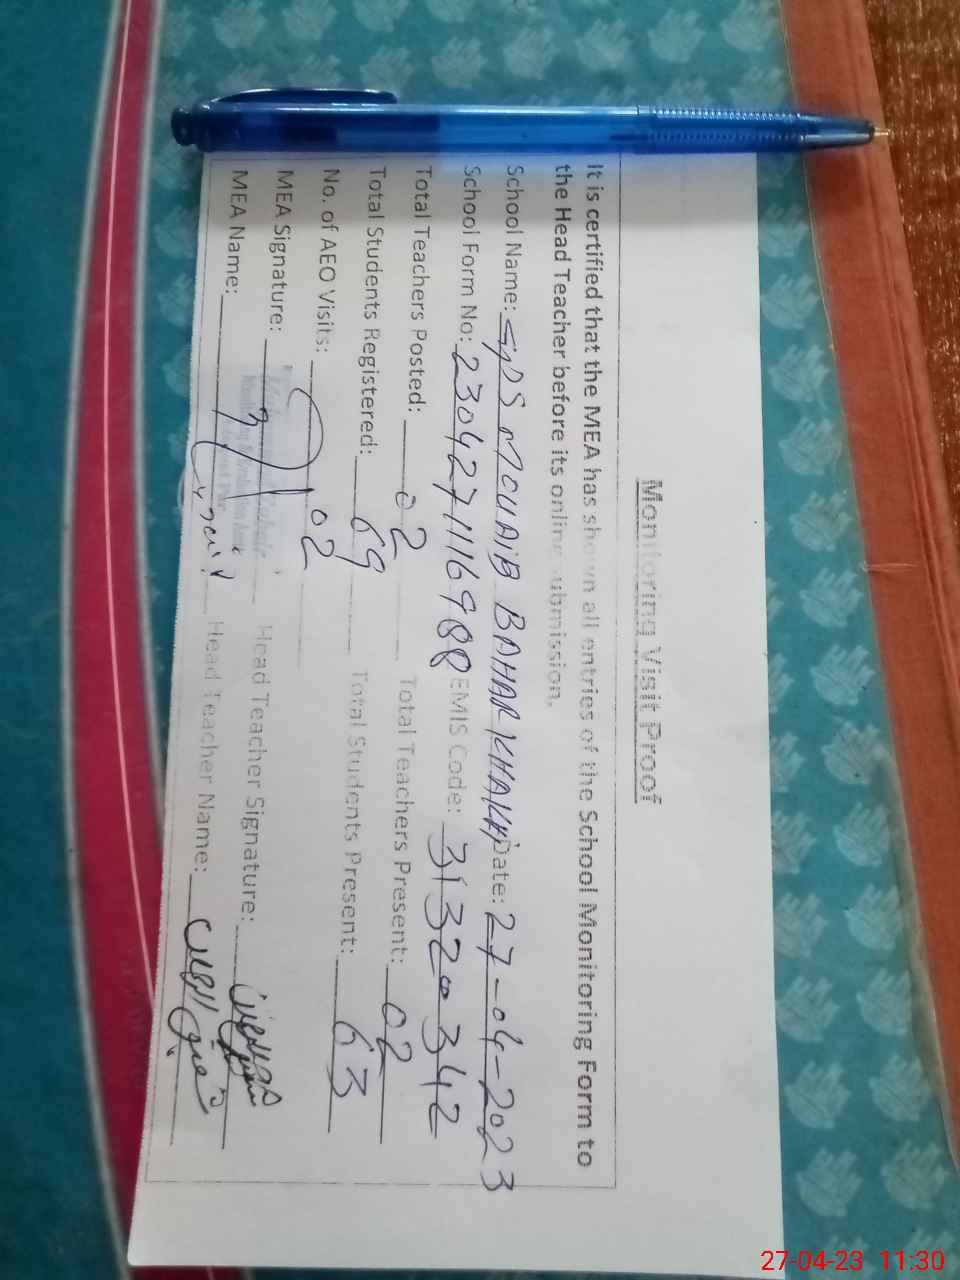 Monitoring Visit Proof
It is certified that the MEA has shown all entries of the School Monitoring Form to
the Head Teacher before its online submission.
School Name: GPS MOUAIB BAHAR KHAKHI Date: 27-04-2023
School Form No: 23042711116988 EMIS Code: 31320342
Total Teachers Posted: 02 Total Teachers Present: 02
Total Students Registered: 69 Total Students Present: 63
No. of AEO Visits: 02
MEA Signature: Head Teacher Signature:
MEA Name: Head Teacher Name:
27-04-23 11:30